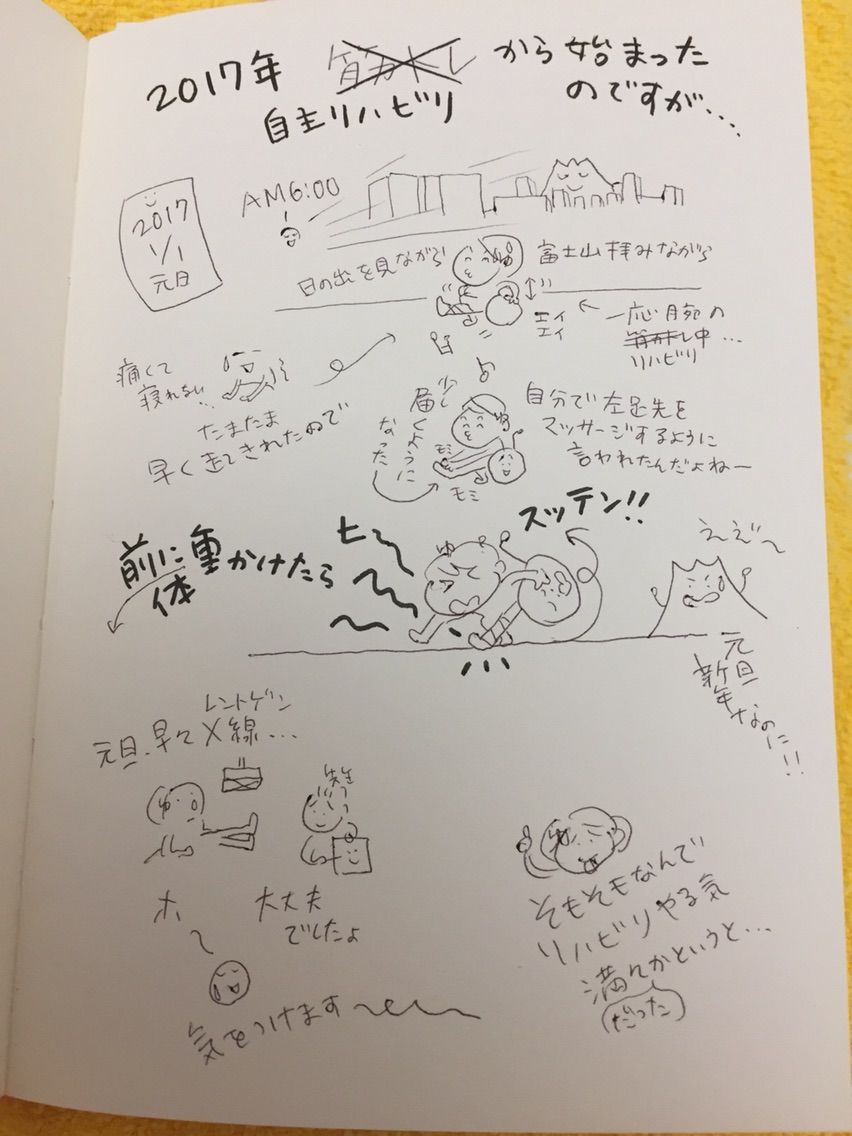 2017年 筋カトレ から始まった
自主リハビリ
のですが…
2017
1/1
元旦
AM6:00
日の出を見ながら
富士山拝みながら
エイ
エイ
一応腕の
筋カトレ中…
リハビリ
痛くて
寝れない…
たまたま
早く起きれたので
少し
届くように
なった
モミ
モミ
自分で左足先を
マッサージするように
言われたんだよねー
前に体重かけたら
ヒ〜
スッテン!!
ええ〜
元旦
新年なのに!!
レントゲン
元旦、早々X線…
ゆ
先生
ホ〜
大丈夫
でしたよ
気をつけます〜
そもそもなんで
リハビリやる気
満々かというと…
だった